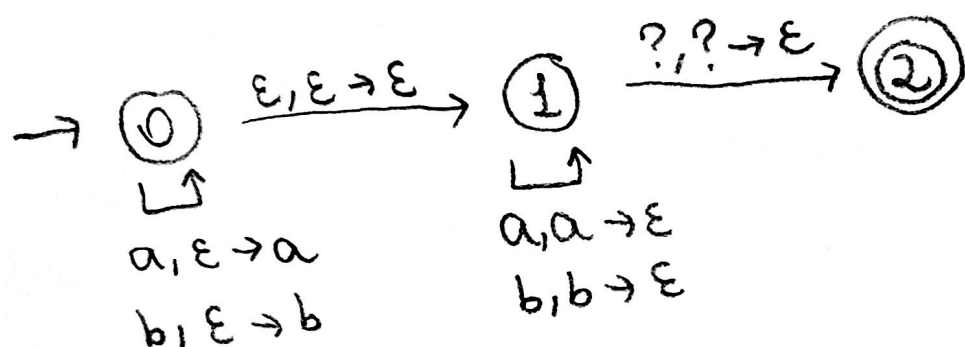 ε, ε → ε
?, ? → ε
0
1
2
a, ε → a
b, ε → b
a, a → ε
b, b → ε